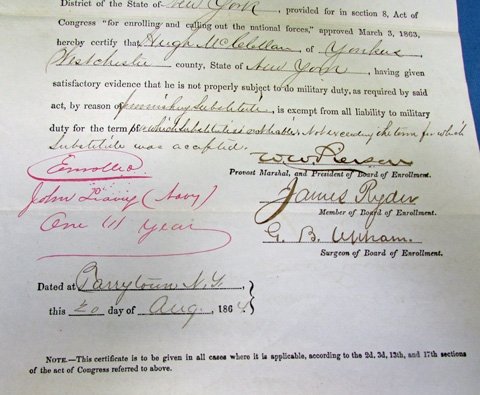 District of the State of New York, provided for in section 8, Act of
Congress "for enrolling and calling out the national forces," approved March 3, 1863,
hereby certify that Hugh McClellan, of Yonkers
Westchester county, State of New York, having given
satisfactory evidence that he is not properly subject to do military duty, as required by said
act, by reason of furnishing Substitute, is exempt from all liability to military
duty for the term for which substitute is not liable. Not exceeding the term for which
Substitute was accepted.
W. W. Pierson
Provost Marshal, and President of Board of Enrollment.
Enrolled
John (Navy)
One (1) Year
James Ryder
Member of Board of Enrollment.
G. B. Upham.
Surgeon of Board of Enrollment.
Dated at Tarrytown N.Y.
this 20 day of Aug., 1864.
NOTE.—This certificate is to be given in all cases where it is applicable, according to the 2d, 3d, 13th, and 17th sections
of the act of Congress referred to above.